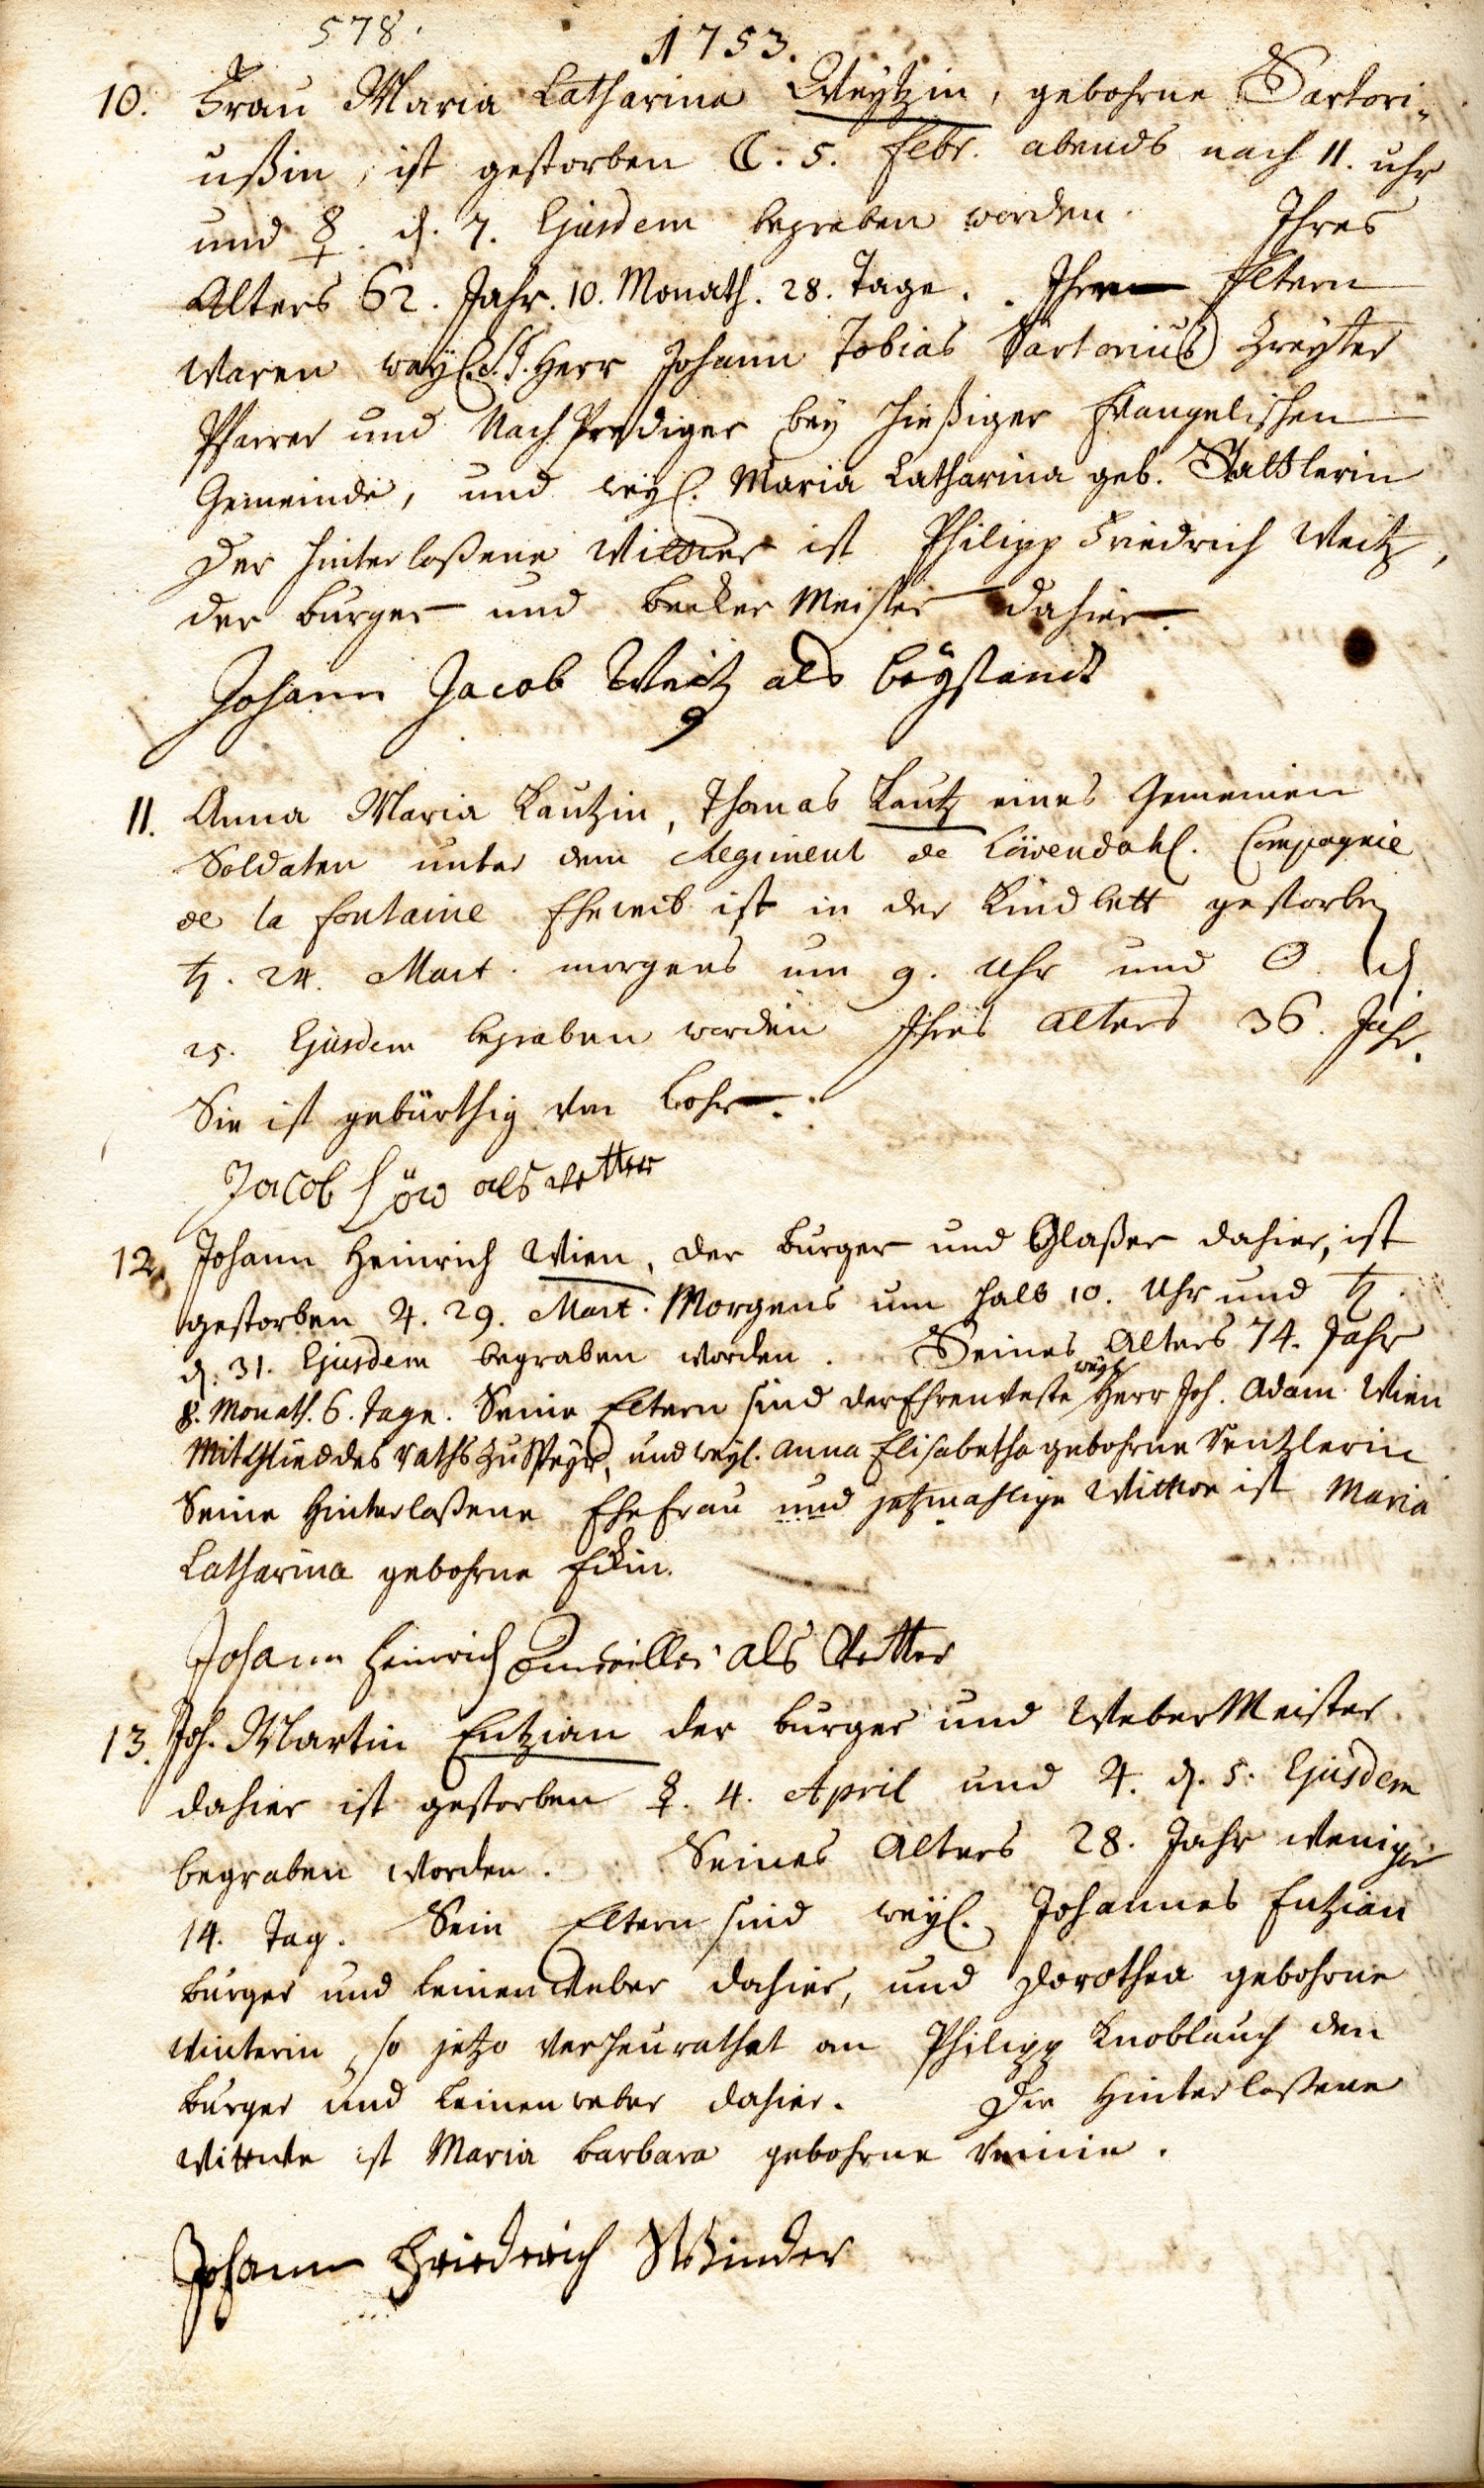 578.
1753.
10. Frau Maria Catharina Weytzin, gebohrne Sartori-
ußin, ist gestorben ☾. 5. Febr. abends nach 11. uhr
und ☿. d. 7. Ejusdem begraben worden. Ihres
Alters 62. Jahr. 10. Monath. 28. Tage. Ihre Eltern
waren weyl. Herr Johann Tobias Sartorius Zweyter
Pfarrer und Nach Prediger bey hießiger Evangelischen
Gemeinde, und weyl. Maria Catharina geb.
Der hinterlaßene Wittwer ist Philipp Friedrich Weitz,
der burger und becker Meister dahier.
Johann Jacob Weitz als beystandt
11. Anna Maria Kautzin, Thomas Kautz eines Gemeinen
Soldaten unter dem Regiment de Löwendahl. Compagnie
de la fontaine Eheweib ist in der Kindbett gestorben
♄. 24. Mart. morgens um 9. Uhr und ☉. d.
25. Ejusdem begraben worden Ihres alters 36. Jahr.
Sie ist gebürthig von Lohr.
Jacob Löw als vetter
12. Johann Heinrich Wien, der burger und Glaßer dahier, ist
gestorben ♃. 29. Mart. Morgens um halb 10. Uhr und ♄.
d. 31. Ejusdem begraben worden. Seines Alters 74. Jahr
8. Monath. 6. Tage. Seine Eltern sind der Ehrenveste weyl. Herr Joh. Adam Wien
Mitglied des raths zu Speyer, und weyl. Anna Elisabetha gebohrne Sentzlerin
Seine hinterlaßene Ehefrau und jetzmahlige Wittwe ist Maria
Catharina gebohrne Eckin.
Johann Heinrich als Vetter
13. Joh. Martin Entzian der burger und Weber Meister
dahier ist gestorben ☿. 4. April und ♃. d. 5. Ejusdem
begraben worden. Seines Alters 28. Jahr weniger
14. Tag. Sein Eltern sind weyl. Johannes Entzian
burger und Leinen Weber dahier, und Dorothea gebohrne
Winterin, so jetzo verheurathet an Philipp Knoblauch den
burger und Leinenweber dahier. Die hinterlaßene
Wittwe ist Maria barbara gebohrne
Johann Friedrich Winder